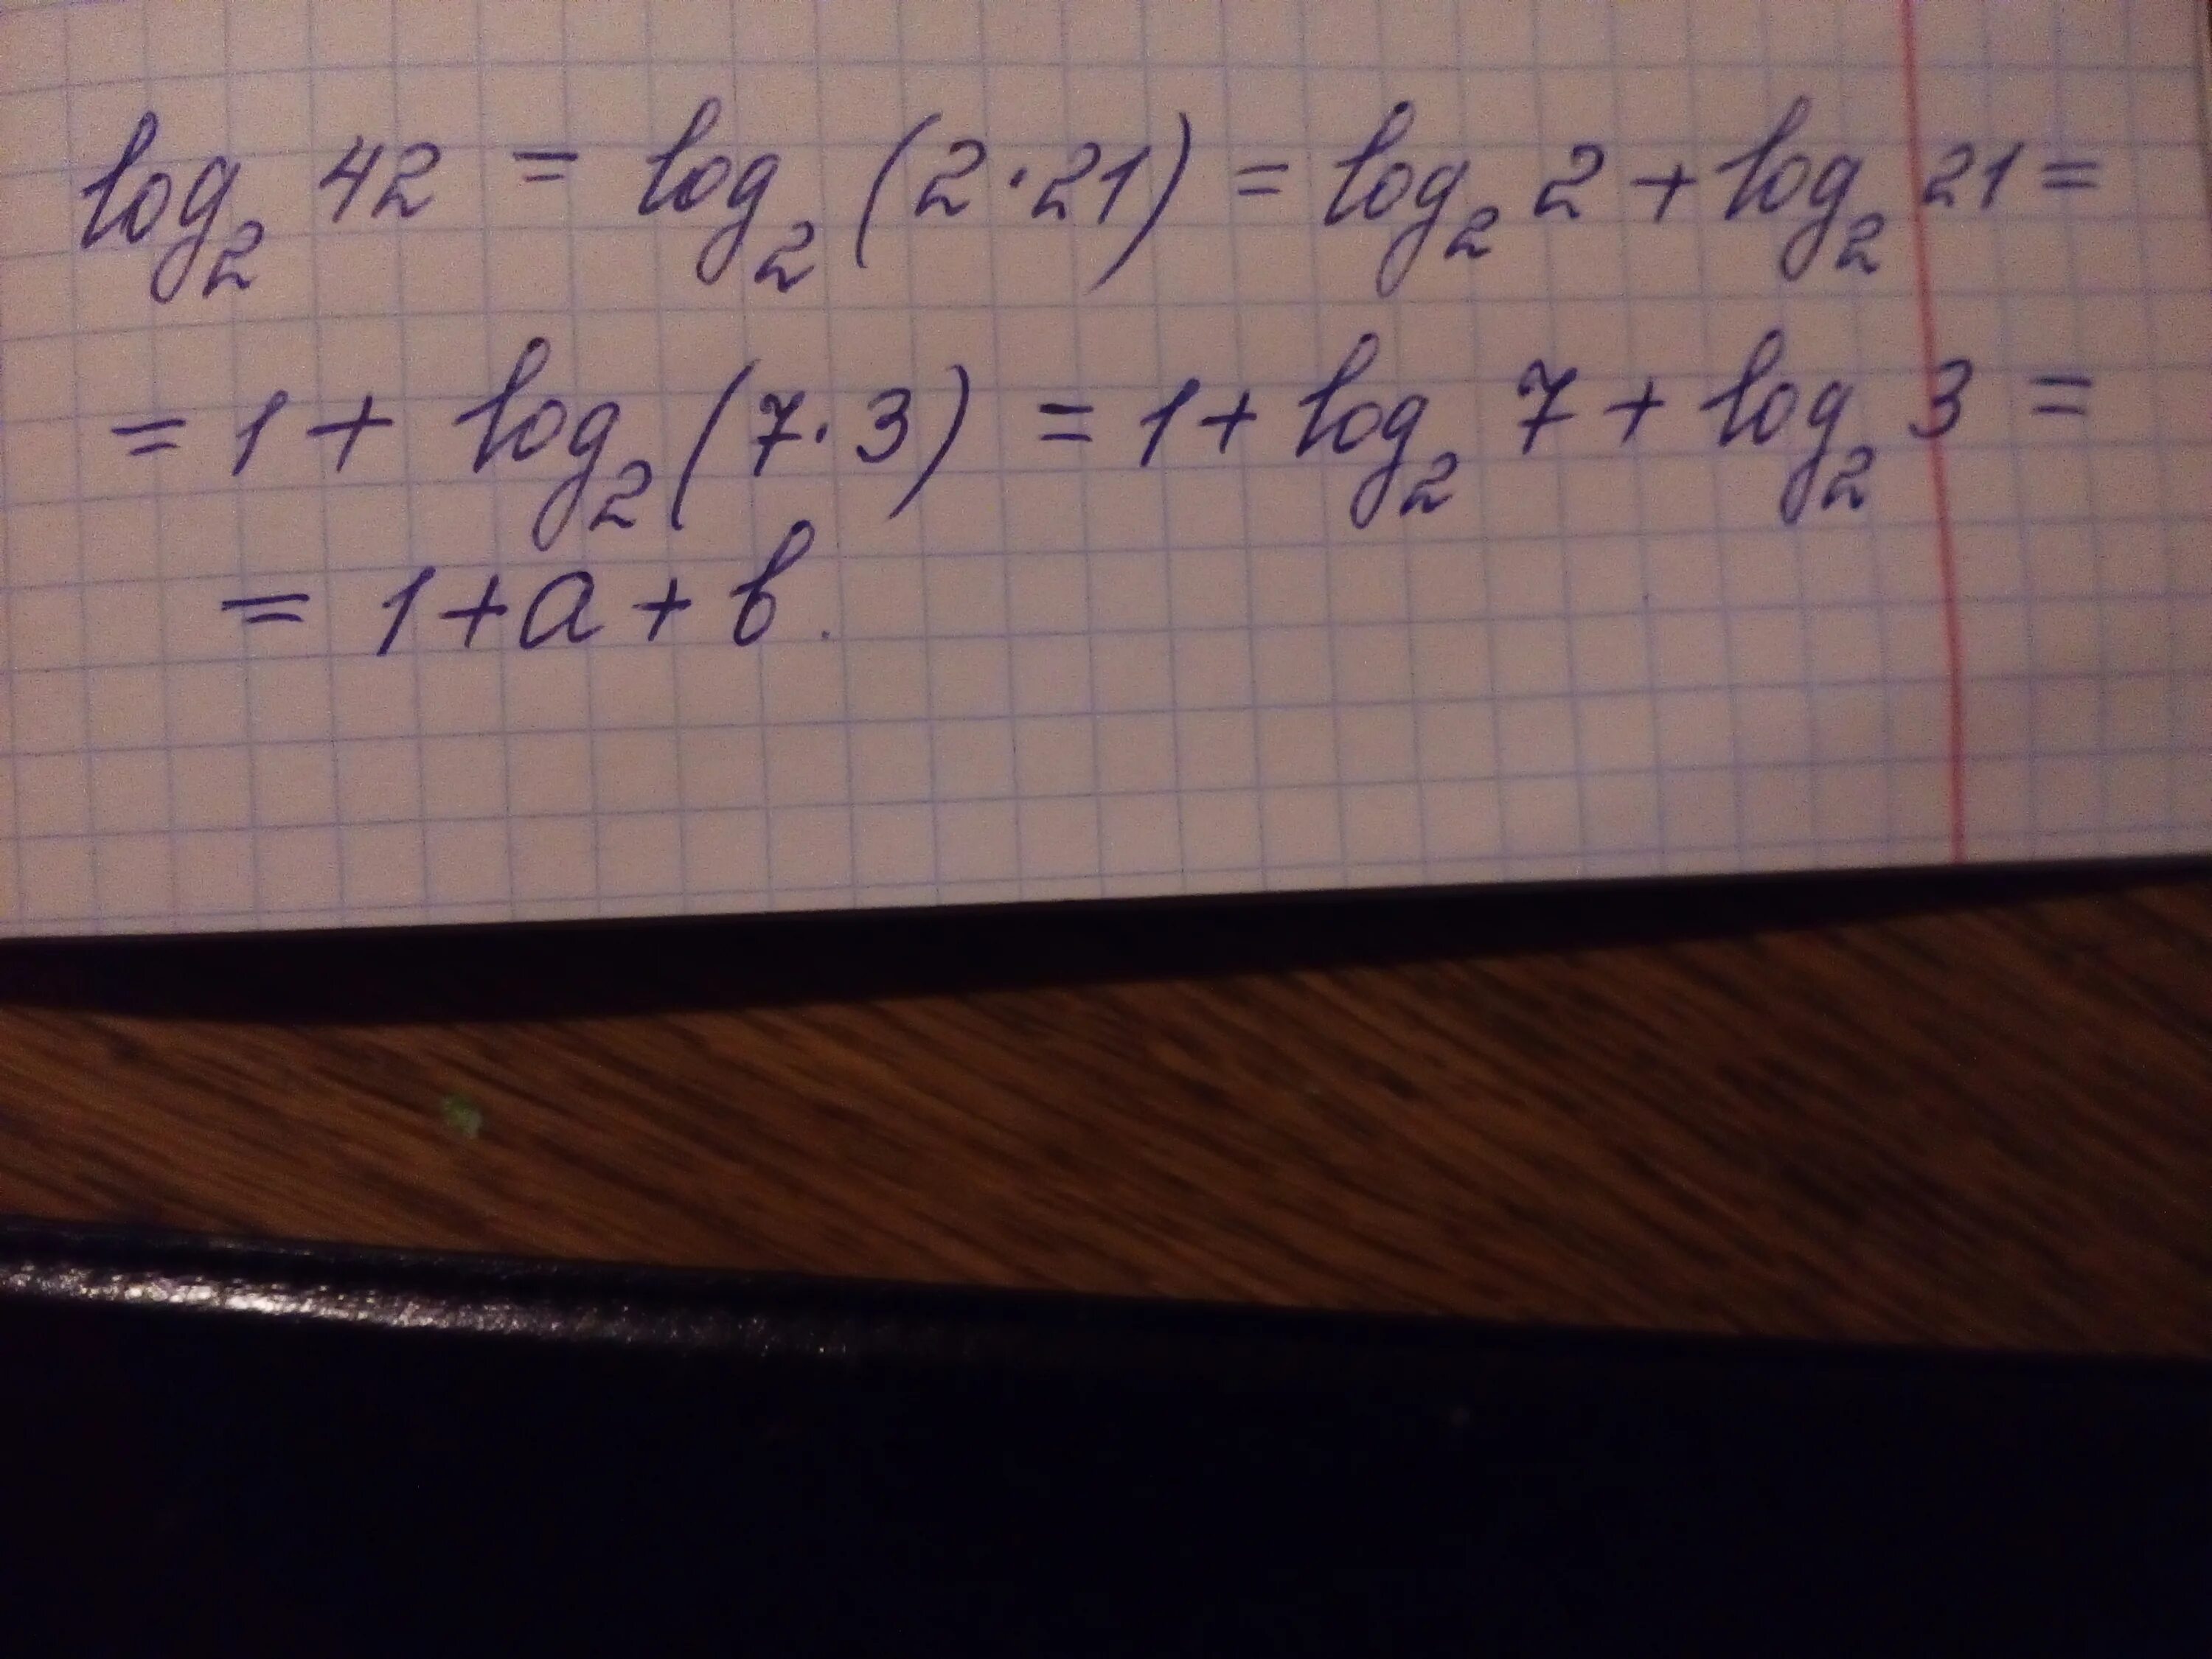 log₂ 42 = log₂ (2·21) = log₂ 2 + log₂ 21 =
= 1 + log₂ (7·3) = 1 + log₂ 7 + log₂ 3 =
= 1 + a + b.